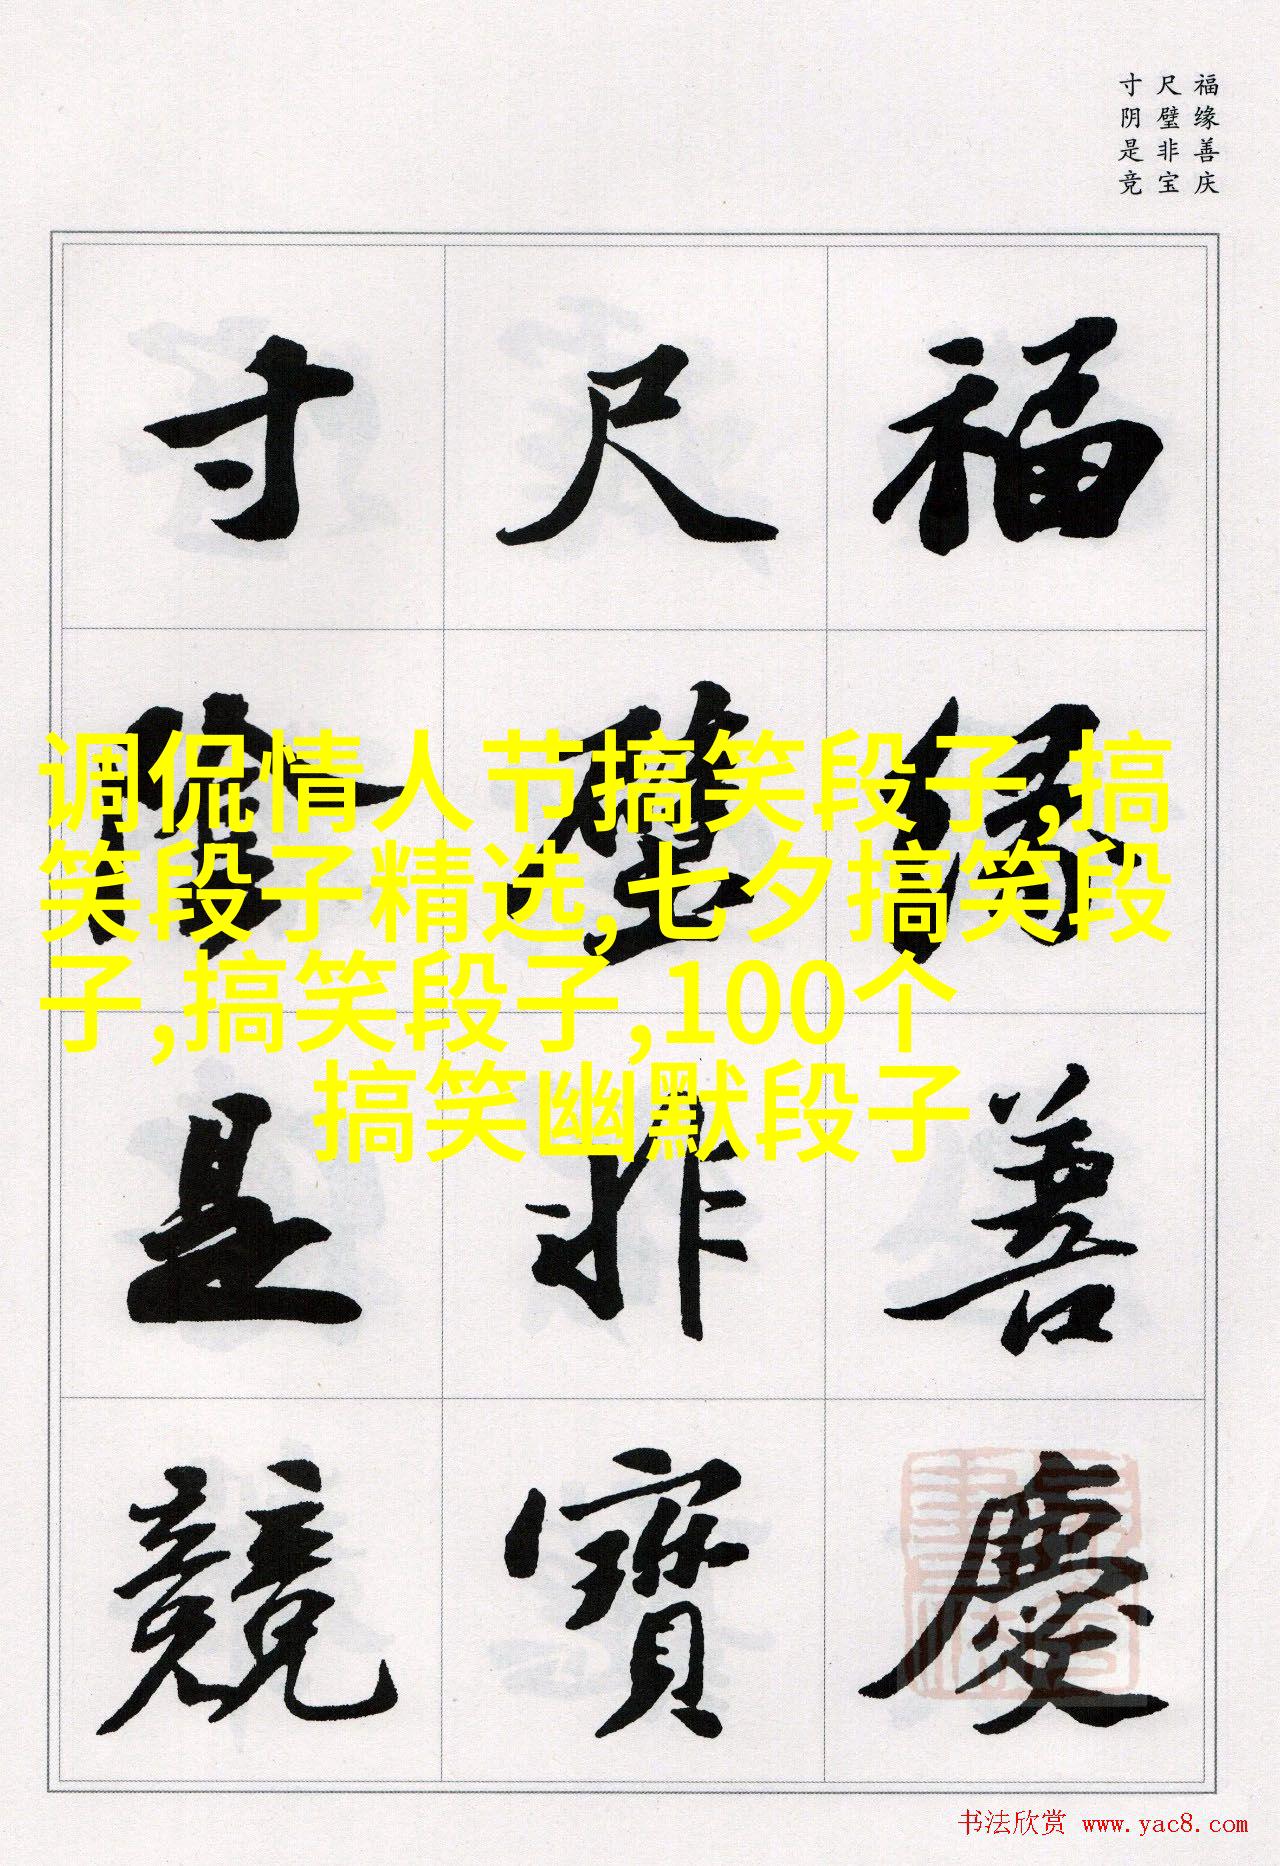 福缘善庆
尺璧非宝
寸阴是竞
福緣善慶
尺璧非寶
寸陰是競
调侃情人节搞笑段子,搞
笑段子精选,七夕搞笑段
子,搞笑段子,100个
搞笑幽默段子
书法欣赏 www.yac8.com